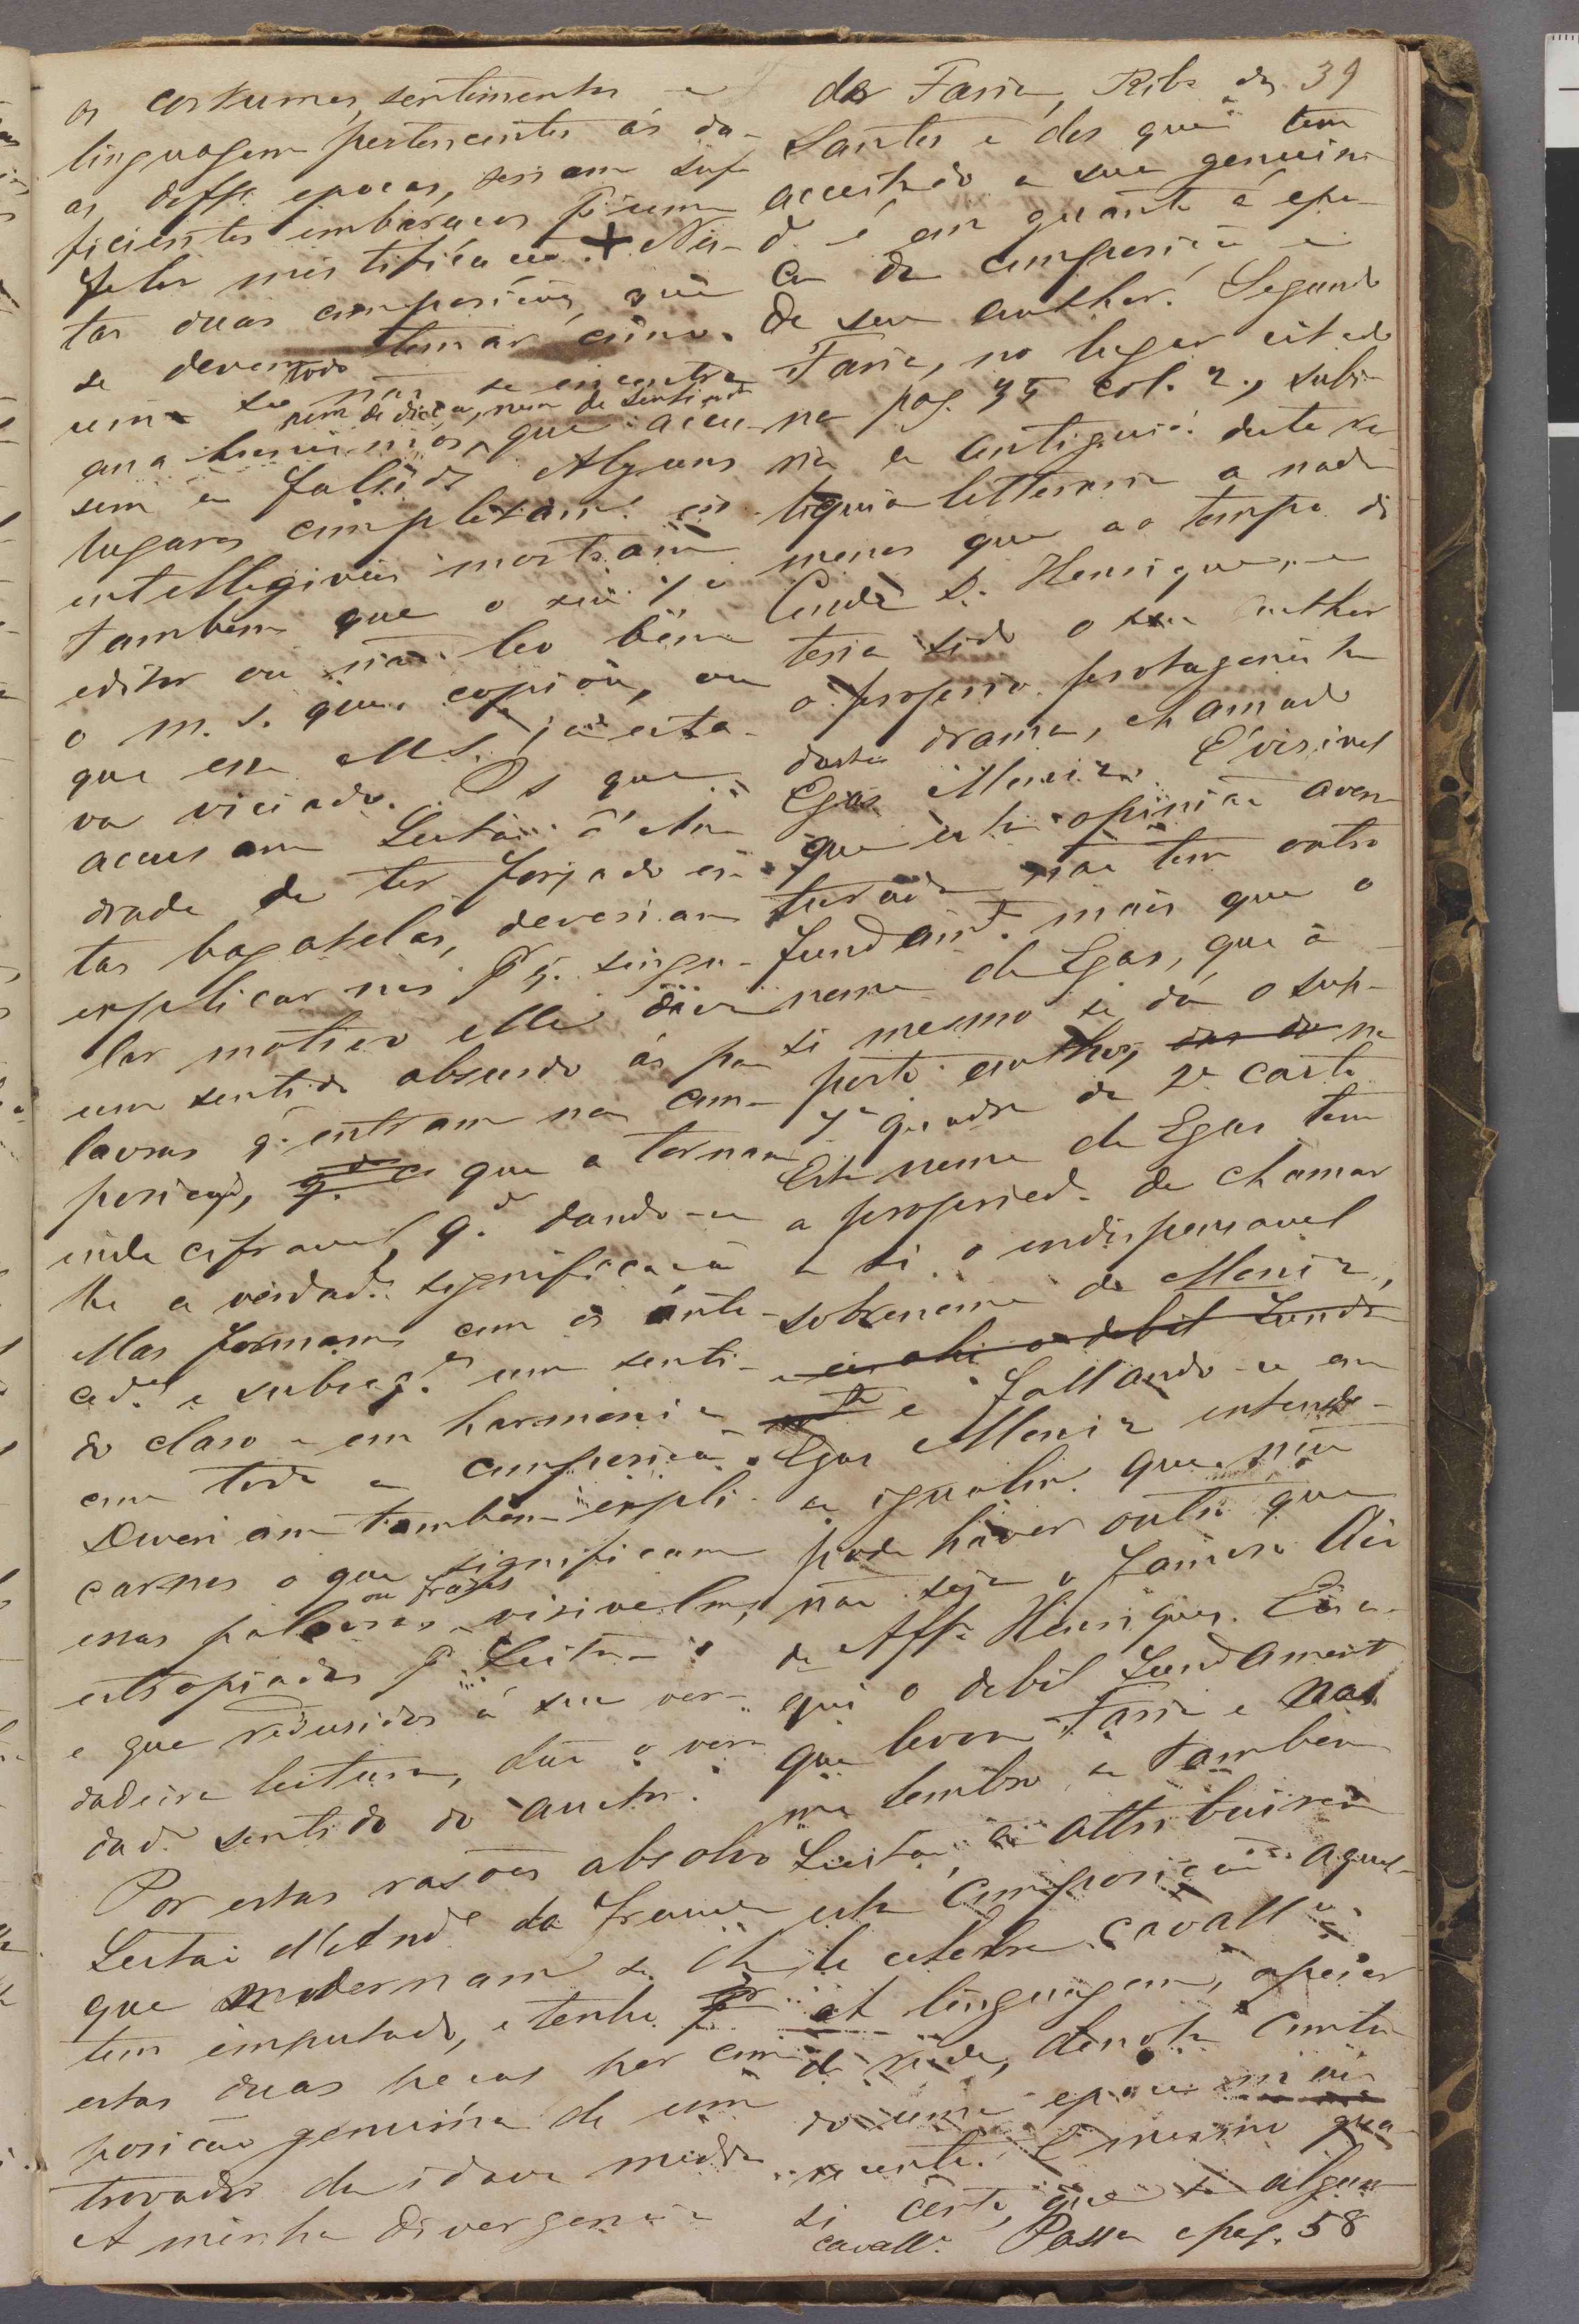 os costumes, sentimentos e
linguagem pertencentes ás da-
as diffes. epocas, seriam suf-
ficientes embaraços pa. uma
feliz mistificação. + Nes-
tas duas composições, que
se devem tomar como
uma só todo não se encontra
nem de dicção, nem de sentimto.
que accu-
sem a falside. Alguns
lugares completam. in-
intellegiveis mostram
tambem que o seu 1o
editor ou não leo bem
o m. s. que copiou, ou
que esse MS. já esta-
va viciado. Os que
accusam Leitão d'An-
drade de ter forjado es-
tas bagatelas, deveriam
explicar-nos pr. q. singu-
lar motivo elle deu
um sentido absurdo ás pa-
lavras q. entram na com-
posição, que a tornam
indecifravel, qdo. dando-se-
lhe a verdada. significação
ellas formam com os ante-
ced.es e subseq.es um senti-
do claro e em harmonia
com toda a composição.
Deveriam tambem expli-
car-nos o que significam
essas palavras ou frases visivelme.
estropiadas pr. Leitão
e que redusidas á sua ver-
dadeira leitura, dão o ver-
dado. sentido do auctor.
Por estas rasões absolvo
Leitão d'Andre. da fraude
que modernam. se lhe
tem imputado, e tenho
estas duas peças por com-
posição genuina de um
trovador da idade media
A minha divergencia
39
de Faria, Ribo. dos
Santos e dos que tem
acceitado a sua genuini-
de. é em quanto á epo-
ca da composição e
de seu author. Segundo
Faria, no lugar citado
na pag. 35 col. 2., subi-
ria a antigui. desta re-
liquia litteraria a nada
menos que ao tempo do
Conde D. Henrique, e
teria sido o seu author
o proprio protagonista
deste drama, chamado
Egas Moniz. É visivel
que esta opinião aven-
turada não tem outro
fundamto. mais que o
nome de Egas, que a
si mesmo se dá o sup-
posto author, na
1a quadra da 2a carta
Este nome de Egas tem
a propried. de chamar
a si o indispensavel
sobrenome de Moniz,
e fallando-se em
Egas Moniz entende-
se igualm. que não
pode haver outro que
não seja o famoso Aio
de Affo. Henriques. Eis a-
qui o debil fundament
que levou Faria e nos
me lembro se tambem
Leitão, a attribuirem
esta composição aquel-
le celebre cavallo.
A linguagem, apesar
de rude, denota comtu-
do uma epoca mais
recente. O mesmo qua-
si certo, que se algum
cavallo. Passa a pag. 58